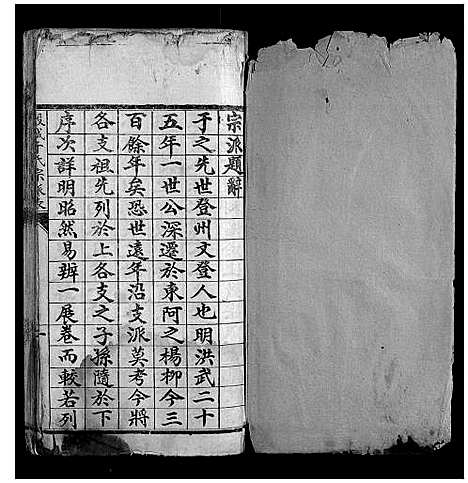 宗派題辭
于之先世登州文登人也明洪武二十
五年一世公深遷於東阿之楊柳今三
百餘年矣恐世遠年沿支派莫考今將
各支祖先列於上各支之子孫隨於下
序次詳明昭然易辨一展卷而較若列
氏宗派
一